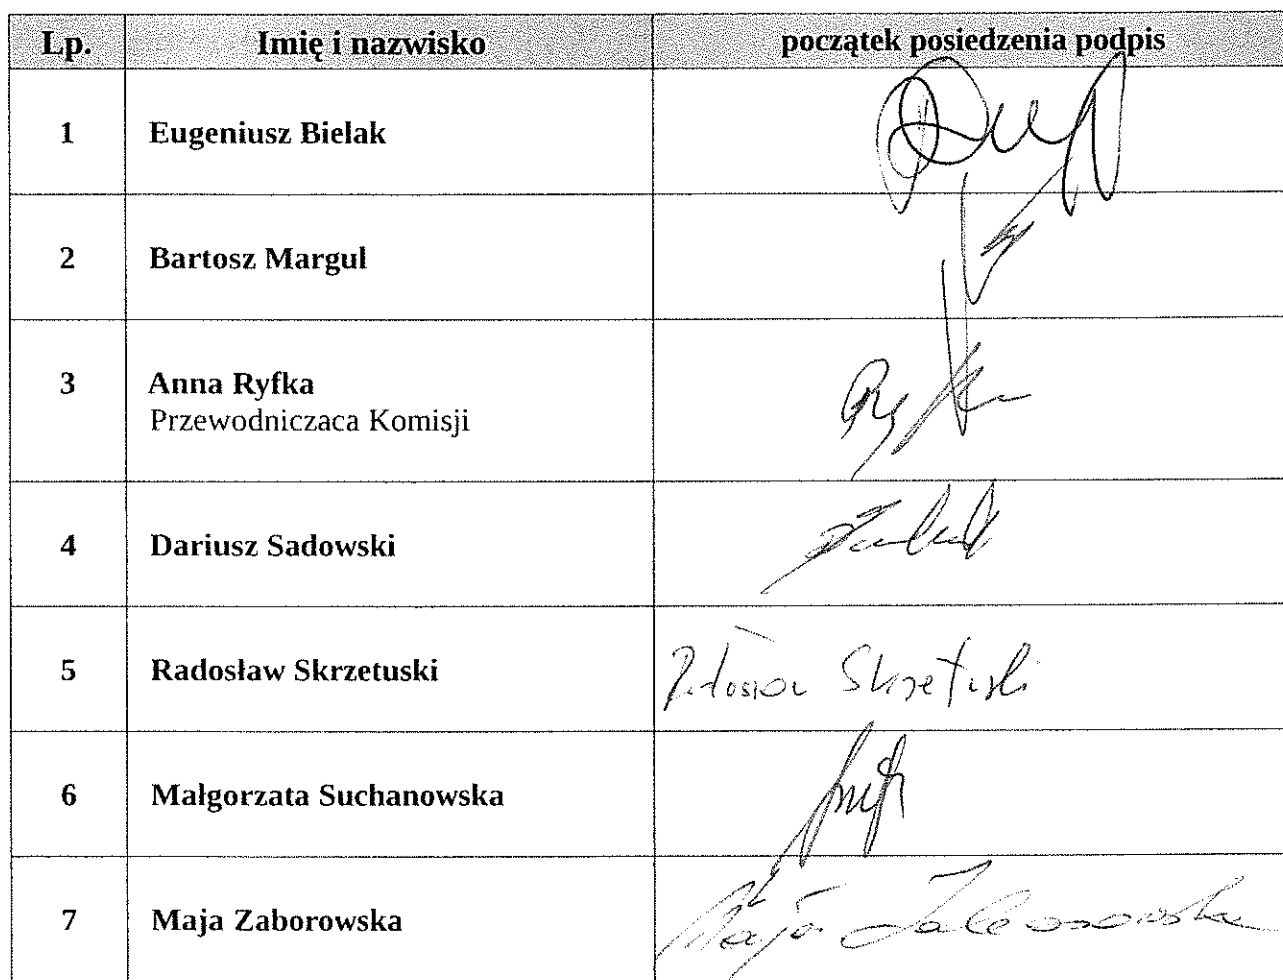 Lp. Imię i nazwisko początek posiedzenia podpis
1 Eugeniusz Bielak
2 Bartosz Margul
3 Anna Ryfka
Przewodniczaca Komisji
4 Dariusz Sadowski
5 Radosław Skrzetuski Skrzetuski
6 Małgorzata Suchanowska
7 Maja Zaborowska Maja